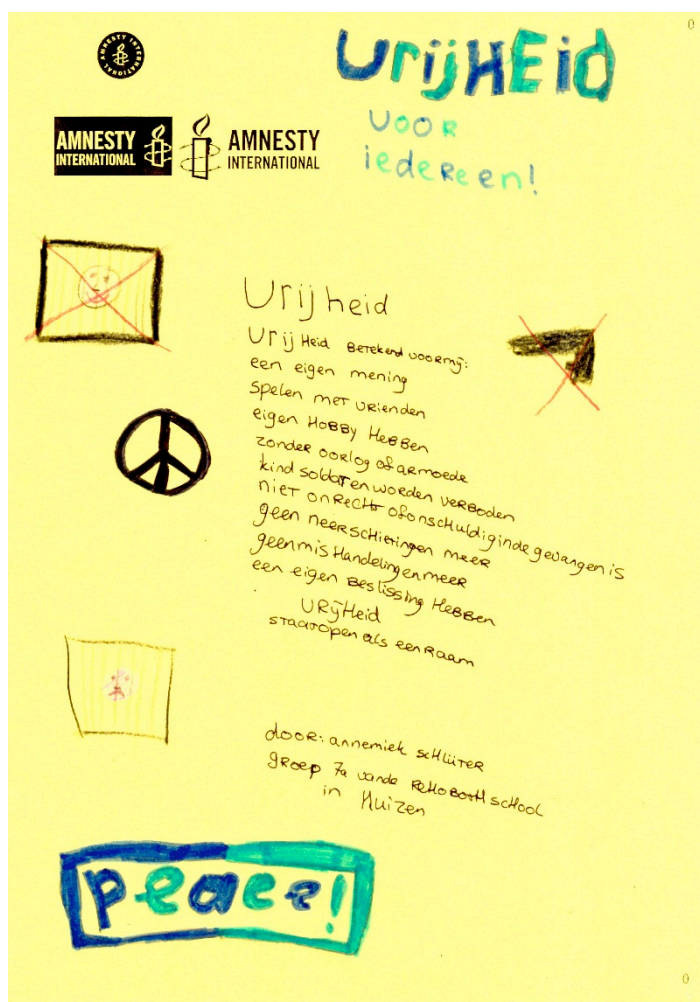 0
AMNESTY INTERNATIONAL
VrijHEid
VOOR
iedereen!
AMNESTY
INTERNATIONAL
AMNESTY
INTERNATIONAL
Vrijheid
VrijHeid BeTekend voormij:
een eigen mening
spelen meT vrienden
eigen HoBBy HeBBen
zonder oorlog of armoede
kind soldaTen worden verBoden
nieT onRecht of onscHuldig in de gevangenis
geen neerschietingen meer
geen misHandelingen meer
een eigen Beslissing HeBBen
VRijHeid
sTaaT open als een Raam
door: annemiek scHlüTer
groep 7a vande ReHoBoTH scHool
in Huizen
peace!
0